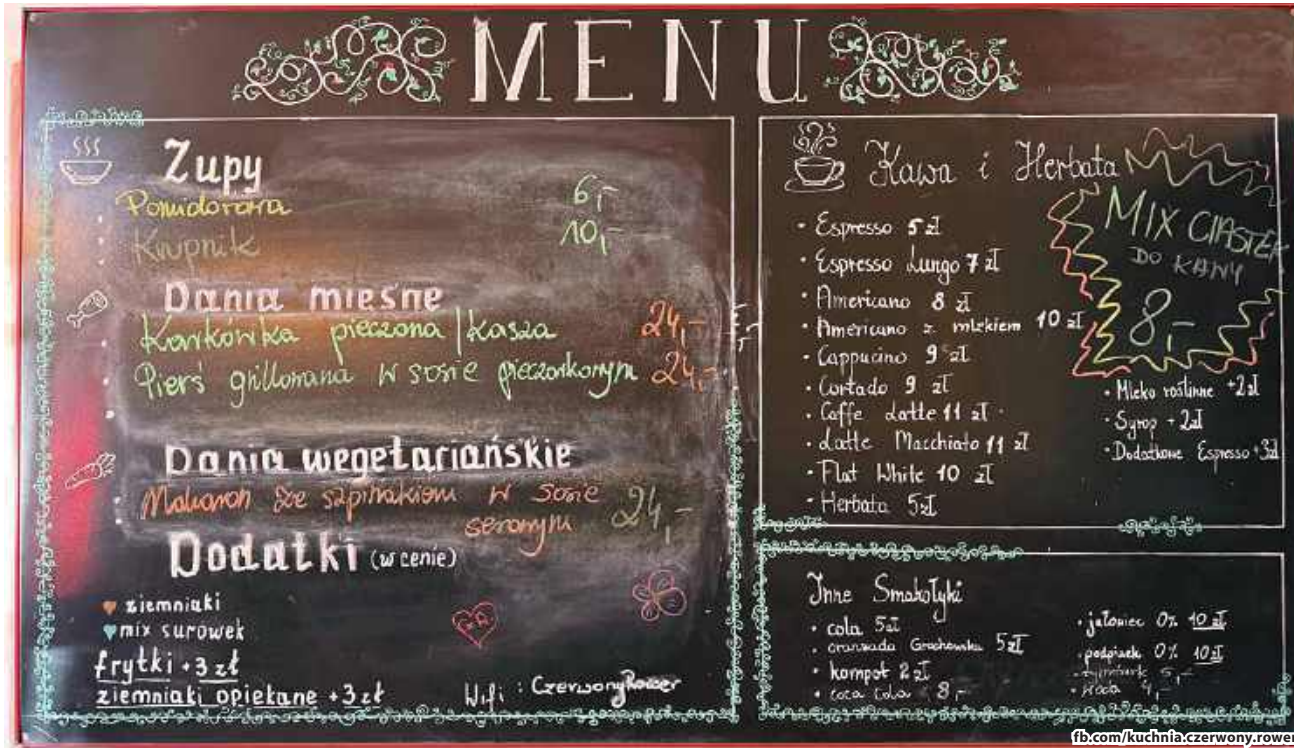 MENU
Zupy
Pomidorowa 6,-
Krupnik 10,-
Dania mięsne
Karkówka pieczona / kasza 24,-
Pierś grillowana w sosie pieczarkowym 24,-
Dania wegetariańskie
Makaron ze szpinakiem w sosie
serowym 24,-
Dodatki (w cenie)
ziemniaki
mix surówek
frytki +3 zł
ziemniaki opiekane +3 zł
Wifi : CzerwonyRower
Kawa i Herbata
• Espresso 5 zł
• Espresso Lungo 7 zł
• Americano 8 zł
• Americano z mlekiem 10 zł
• Cappucino 9 zł
• Cortado 9 zł
• Caffe Latte 11 zł
• Latte Macchiato 11 zł
• Flat White 10 zł
• Herbata 5zł
MIX CIASTEK
DO KAWY
8,-
• Mleko roślinne +2zł
• Syrop +2zł
• Dodatkowe Espresso +3zł
Inne Smakołyki
• cola 5zł
• oranżada Grochowska 5zł
• kompot 2zł
• coca cola 8,-
• jałowiec 0% 10zł
• podpiwek 0% 10zł
5,-
• woda 4,-
fb.com/kuchnia.czerwony.rower